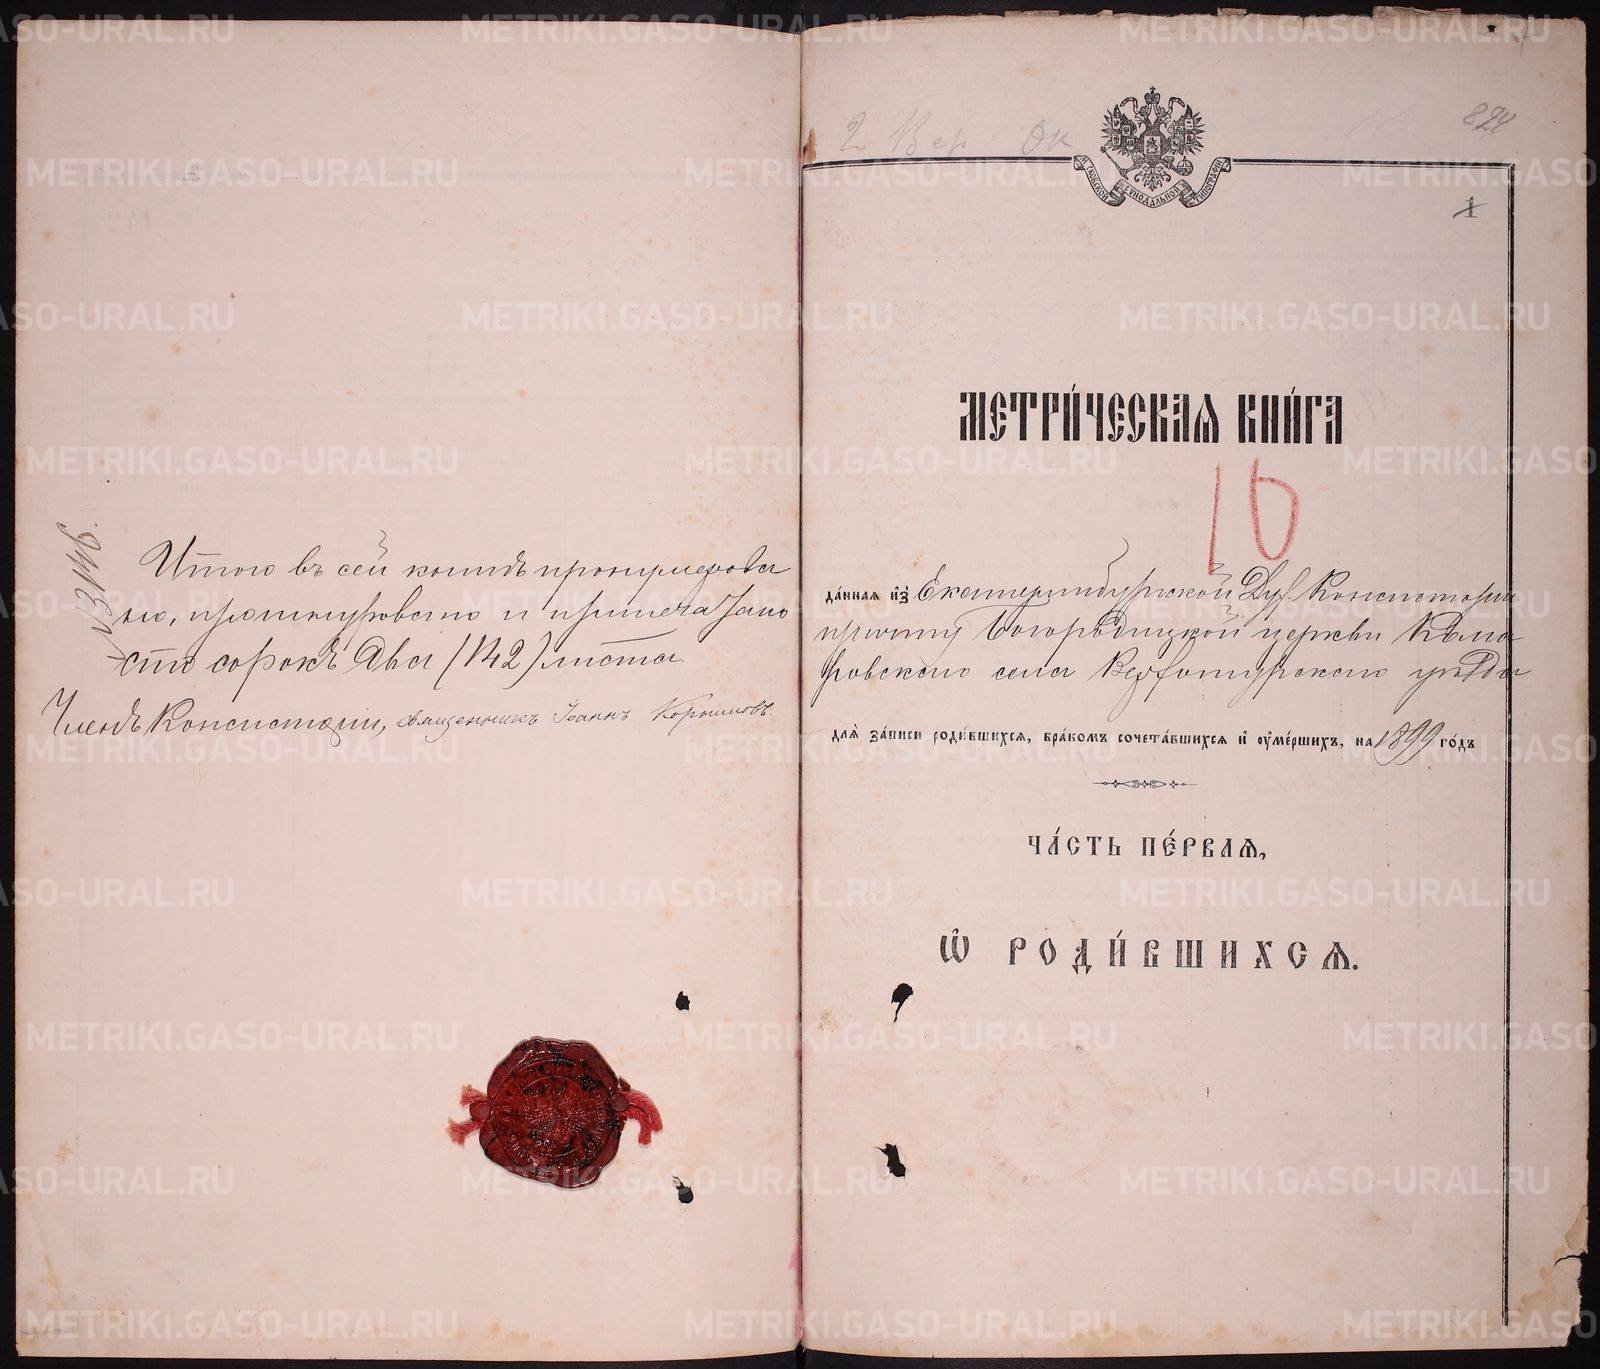 Итого въ сей книгѣ пронумерова
но, прошнуровано и припечатано
сто сорокъ два (142) листа.
Членъ Консисторіи, священникъ Іоаннъ Корниловъ.
2 Вер. Ок
824
1
МОСКОВСКОЙ СѴНОДАЛЬНОЙ ТИПОГРАФІИ
МЕТРИ́ЧЕСКАѦ КНИ́ГА
10
да́нная из̾ Екатеринбургской Дух. Консисторіи
причту Богородицкой церкви Кома
ровскаго села Верхотурскаго уѣзда
для̀ за́писи роди́вшихся, бра́комъ сочета́вшихся и҆ ᲂу҆ме́ршихъ, на 1899 го́дъ
ЧА́СТЬ ПЕ́РВАѦ,
Ѡ҆ РОДИ́ВШИХСѦ.
METRIKI.GASO-URAL.RU